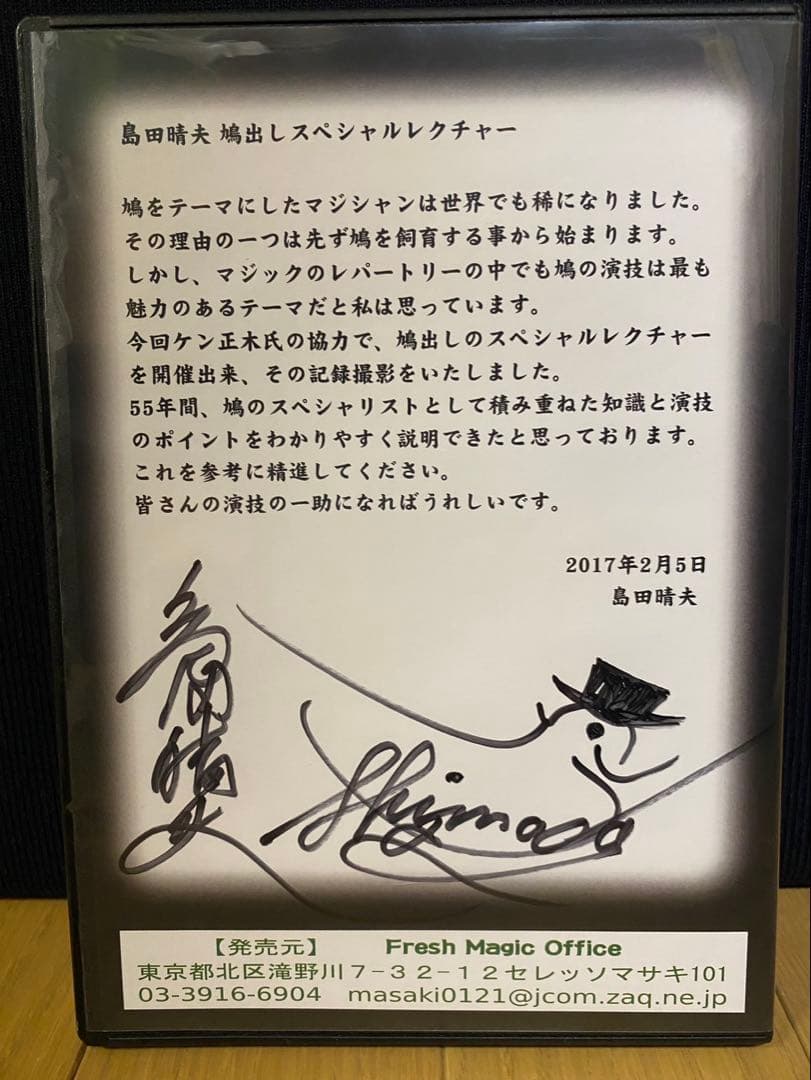 島田晴夫 鳩出しスペシャルレクチャー
鳩をテーマにしたマジシャンは世界でも稀になりました。
その理由の一つは先ず鳩を飼育する事から始まります。
しかし、マジックのレパートリーの中でも鳩の演技は最も
魅力のあるテーマだと私は思っています。
今回ケン正木氏の協力で、鳩出しのスペシャルレクチャー
を開催出来、その記録撮影をいたしました。
55年間、鳩のスペシャリストとして積み重ねた知識と演技
のポイントをわかりやすく説明できたと思っております。
これを参考に精進してください。
皆さんの演技の一助になればうれしいです。
2017年2月5日
島田晴夫
島田晴夫
Shimada
【発売元】 Fresh Magic Office
東京都北区滝野川7-32-12セレッソマサキ101
03-3916-6904 masaki0121@jcom.zaq.ne.jp